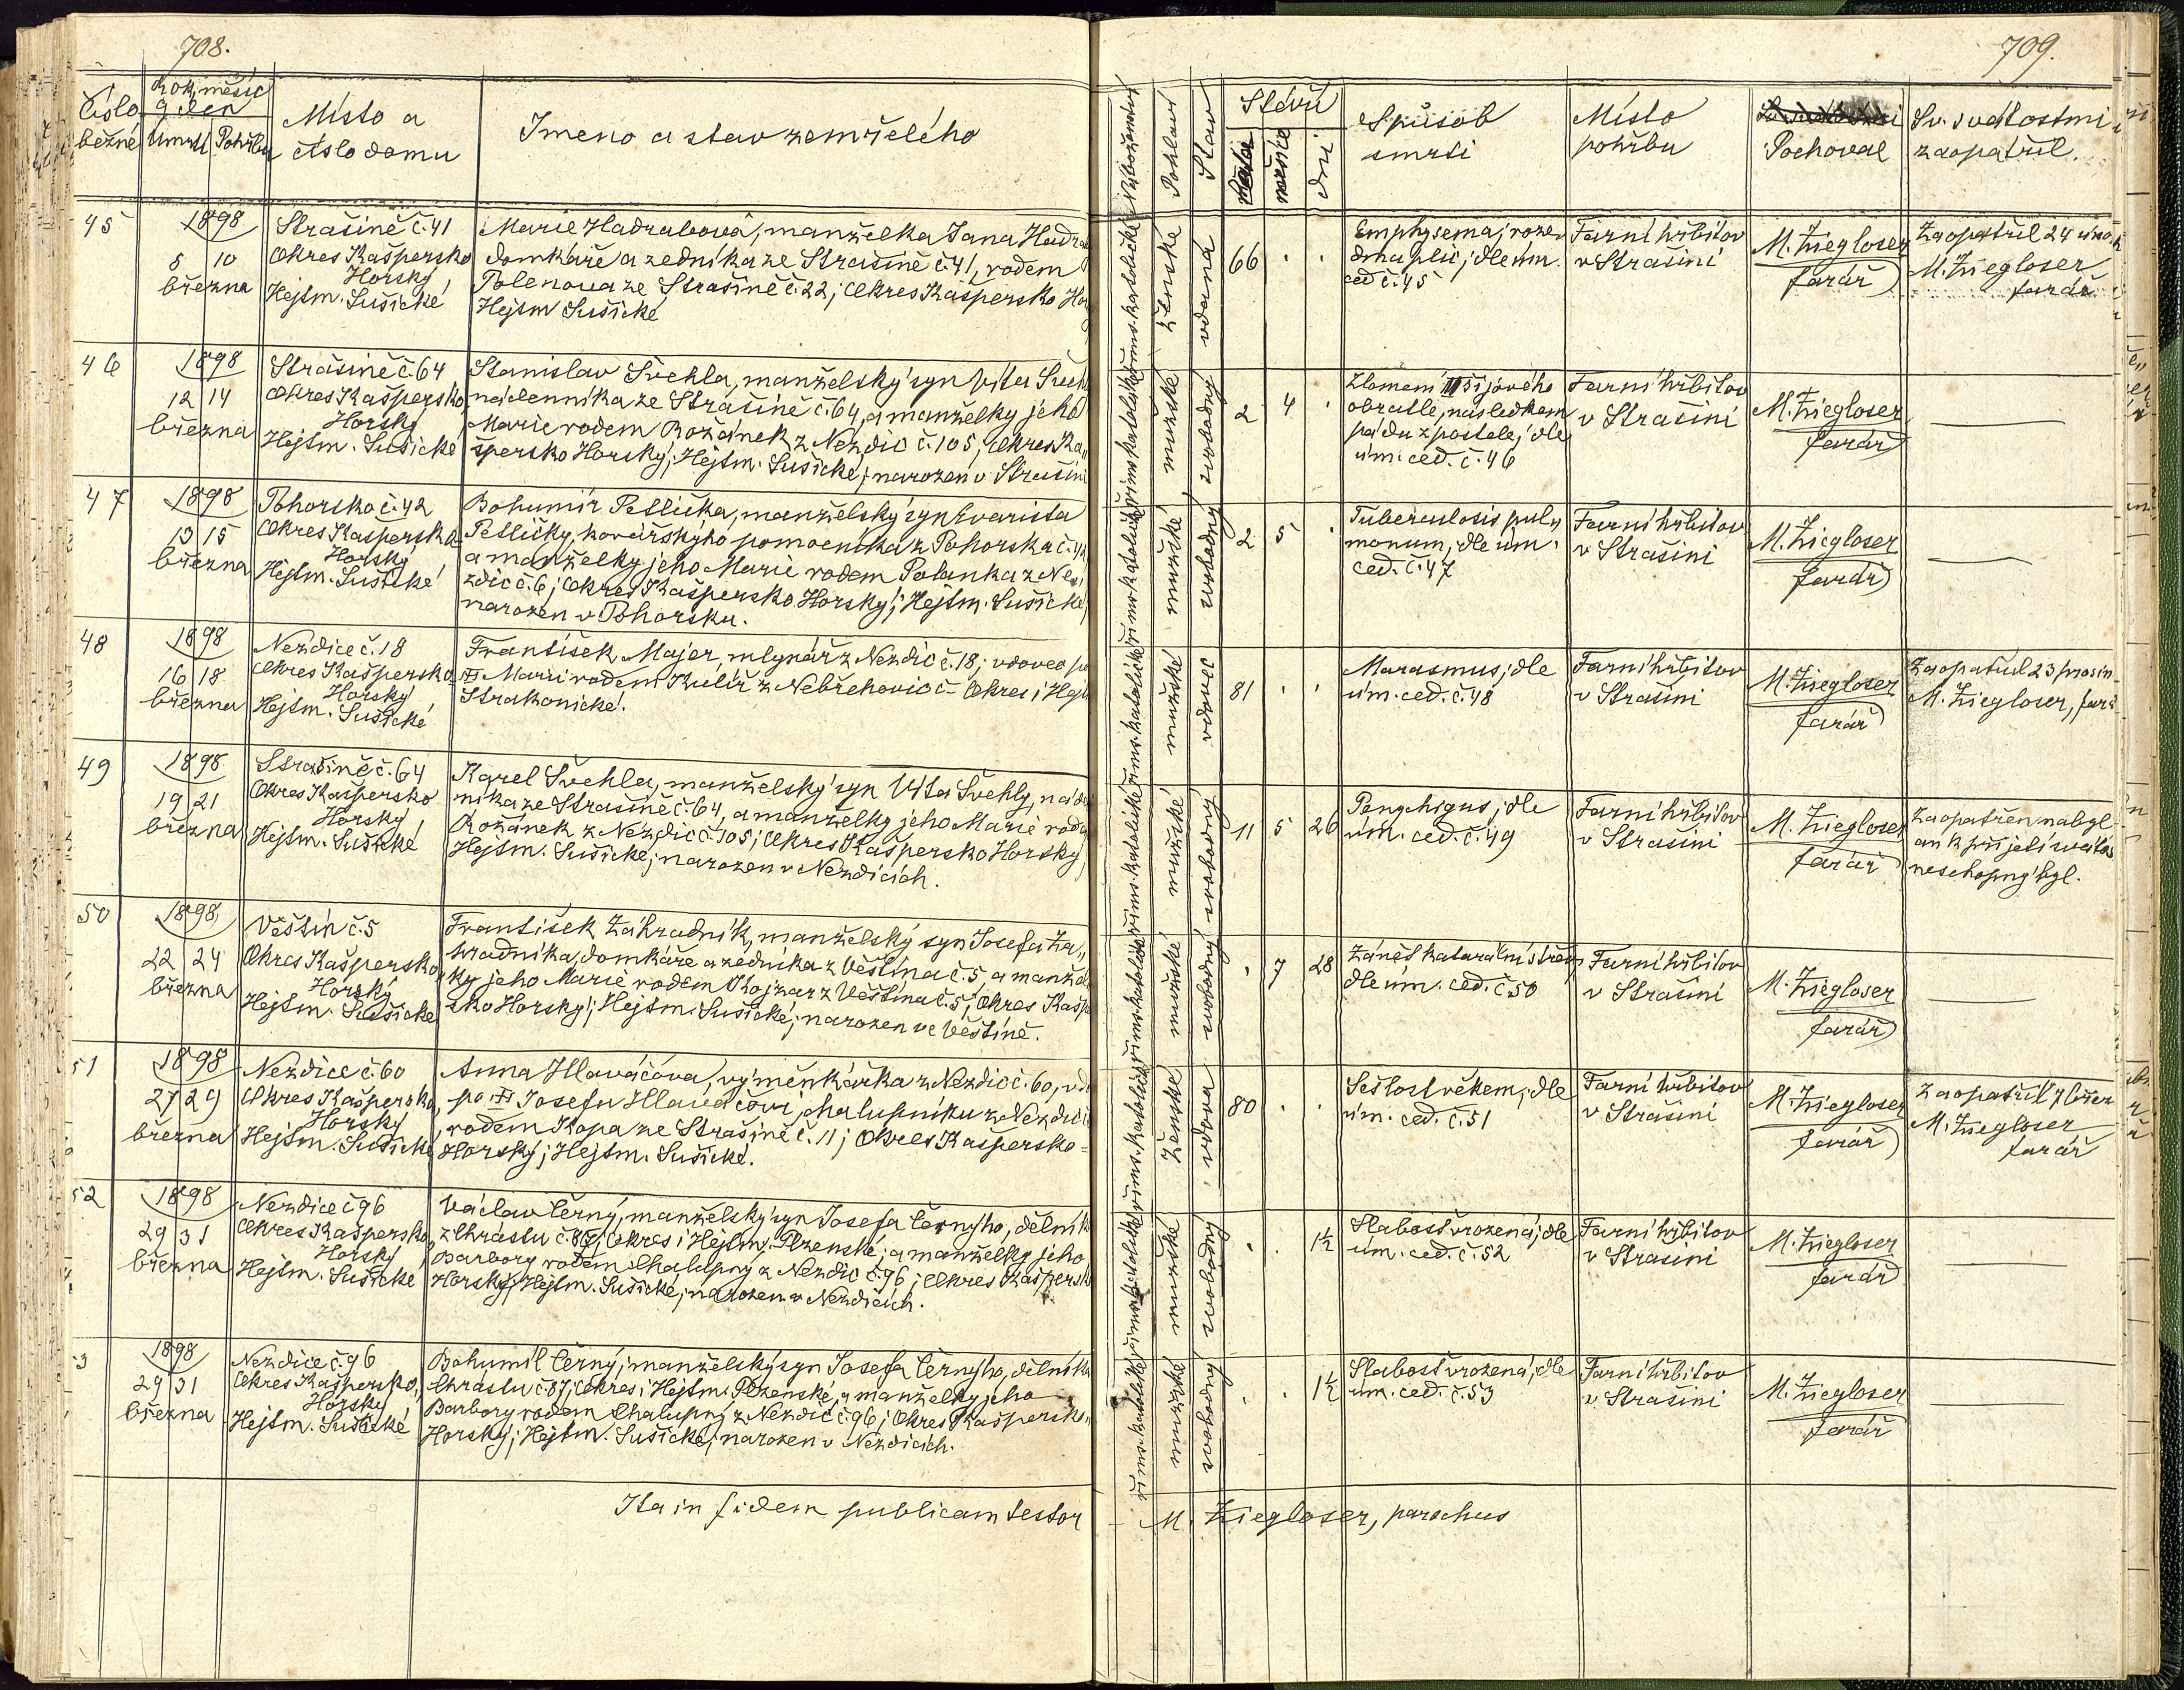 708.
Číslo běžné
Rok, měsíc a den
Úmrtí
Pohřbu
Místo a
číslo domu
Jmeno a stav zemřelého
45
1898
8 10
března
Strašině č. 41
Okres Kašpersko
Horský
Hejtm. Sušické
Marie Hadrabová, manželka Jana
domkáře a zedníka ze Strašině č. 41, rodem
Polenova ze Strašině č. 22; Okres Kašpersko
Hejtm Sušické
46
1898
12 14
března
Strašině č. 64
Okres Kašpersko
Horský
Hejtm. Sušické
Stanislav Švehla, manželský syn Víta
nádenníka ze Strašině č. 64, a manželky jeho
Marie rodem Rožánek z Nezdic č. 105; Okres Ka„
špersko Horský; Hejtm. Sušické; narozen v Strašini
47
1898
13 15
března
Pohorsko č. 42
Okres Kašpersko
Horský
Hejtm. Sušické
Bohumír Petlička, manželský syn Evarista
Petličky, kovářskýho pomocníka z Pohorska č. 42
a manželky jeho Marie rodem Polanka z Ne„
zdic č. 6; Okres Kašpersko Horský; Hejtm. Sušické
narozen v Pohorsku.
48
1898
16 18
března
Nezdice č. 18
Okres Kašpersko
Horský
Hejtm. Sušické
František Majer, mlynář z Nezdic č. 18; vdovec po
Marii rodem Kulíř z Nebřehovic č – Okres i
Strakonické.
49
1898
19 21
března
Strašině č. 64
Okres Kašpersko
Horský
Hejtm. Sušické
Karel Švehla, manželský syn Víta Švehly,
níka ze Strašině č. 64, a manželky jeho Marie
Rožánek z Nezdic č. 105; Okres Kašpersko Horský
Hejtm. Sušické; narozen v Nezdicích.
50
1898
22 24
března
Věštín č. 5
Okres Kašpersko
Horský
Hejtm. Sušické
František Záhradník, manželský syn Josefa Zá„
hradníka, domkáře a zedníka z Věštína č. 5, a
ky jeho Marie rodem Kojzar z Věštína č. 5; Okres
sko Horský; Hejtm. Sušické; narozen ve Věštíně.
51
1898
27 29
března
Nezdice č. 60
Okres Kašpersko
Horský
Hejtm. Sušické
Anna Hlaváčova, výměnkářka z Nezdic č. 60,
po Josefu Hlaváčovi, chalupníku z
rodem Kopa ze Strašině č. 11; Okres Kašpersko=
Horský; Hejtm. Sušické.
52
1898
29 31
března
Nezdice č 96
Okres Kašpersko
Horský
Hejtm. Sušické
Václav Černý, manželský syn Josefa Černyho, dělníka
z Chrástu č. 87; Okres i Hejtm. Plzenské; a manželky jeho
Barbory rodem Chalupný z Nezdic č. 96; Okres Kašpersko
Horský; Hejtm. Sušické; narozen v Nezdicích.
3
1898
29 31
března
Nezdice č. 96
Okres Kašpersko,
Horský
Hejtm. Sušické
Bohumil Černý; manželský syn Josefa Černyho, dělníka
Chrástu č. 87; Okres i Hejtm. Plzenské, a manželky jeho
Barbory rodem Chalupný z Nezdic č. 96; Okres Kašpersko
Horský; Hejtm. Sušické; narozen v Nezdicích.
Ita in fidem publicam testor
709.
Náboženství
Pohlaví
Stav
Stáří
měsíce
dní
Spůsob
smrti
Místo
pohřbu
Pochoval
Sv. svátostmi
zaopatřil.
říms. katolické
ženské
vdaná
66 . .
Emphysema; rozed
dle úm.
ced č. 45
Farní hřbitov
v Strašini
M. Ziegloser
farář
Zaopatřil 24
M. Ziegloser
farář
říms. katolické
mužské
svobodný
2 4 .
Zlomení šijového
obratle, následkem
pádu z postele; dle
úm. ced. č. 46
Farní hřbitov
v Strašini
M. Ziegloser
farář
říms. katolické
mužské
svobodný
2 5 .
Tuberculosis pul„
monum, dle úm.
ced. č. 47
Farní hřbitov
v Strašini
M. Ziegloser
farář
říms. katolické
mužské
vdovec
81 . .
Marasmus; dle
úm. ced. č. 48
Farní hřbitov
v Strašini
M. Ziegloser
farář
Zaopatřil 23 prosin
M. Ziegloser, farář
říms. katolické
mužské
svobodný
11 5 26
Pemphigus; dle
úm. ced. č. 49
Farní hřbitov
v Strašini
M. Ziegloser
farář
Zaopatřen nebyl
an k přijetí
neschopný byl.
říms. katolické
mužské
svobodný
. 7 28
Zánět katarální střev
dle úm. ced. č 50
Farní hřbitov
v Strašini
M. Ziegloser
farář
říms. katolické
Ženské
vdova
80 . .
Sešlost věkem; dle
úm. ced. č. 51
Farní hřbitov
v Strašini
M. Ziegloser
farář
Zaopatřil
M. Ziegloser
farář
říms. katolické
mužské
svobodný
. . 1½
Slabost vrozená; dle
úm. ced. č. 52
Farní hřbitov
v Strašini
M. Ziegloser
farář
říms. katolické
mužské
svobodný
. . 1½
Slabost vrozená; dle
úm. ced. č. 53
Farní hřbitov
v Strašini
M. Ziegloser
farář
M. Ziegloser, parochus